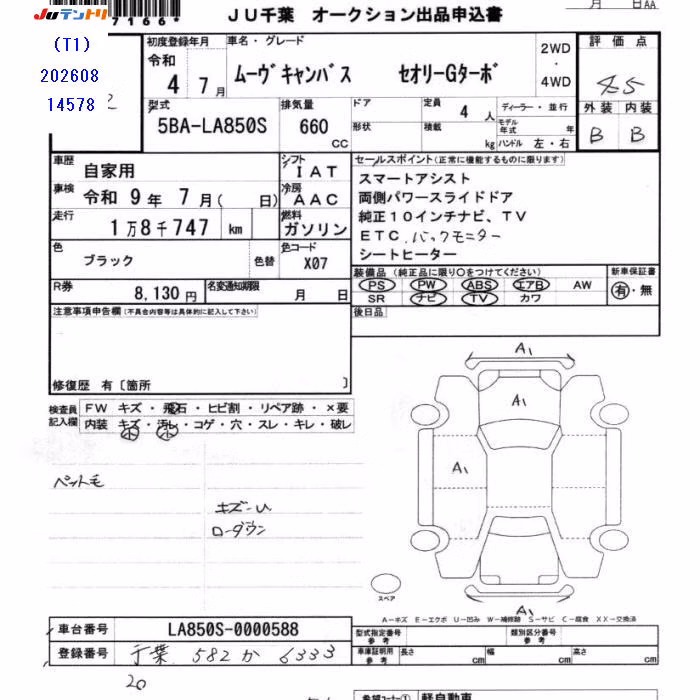 JUテントリ
7166*
月 日 AA
JU千葉 オークション出品申込書
(T1)
202608
14578
初度登録年月 車名・グレード 2WD・4WD 評価点
令和 4年 7月 ムーヴキャンバス セオリーGターボ 4.5
型式 排気量 ドア 定員 ディーラー・並行 外装 内装
5BA-LA850S 660 CC 形状 積載 4人 kg モデル年式 年 ハンドル 左・右 B B
車歴 自家用 シフト IAT セールスポイント(正常に機能するものに限ります)
車検 令和 9年 7月( 日) 冷房 AAC スマートアシスト
両側パワースライドドア
走行 1万8千747 km 燃料 ガソリン 純正10インチナビ、TV
ETC.バックモニター
色 ブラック 色替 色コード X07 シートヒーター
装備品(純正品に限り○をつけてください) 新車保証書
R券 8,130円 名変通知期限 月 日 PS PW ABS エアB AW 有・無
SR ナビ TV カワ
注意事項申告欄(不具合内容等は具体的に記入して下さい) 後日品
修復歴 有〔箇所 〕
検査員記入欄 FW キズ・飛石・ヒビ割・リペア跡・×要
内装 キズ・汚レ・コゲ・穴・スレ・キレ・破レ
小 小
A1
A1
A1
ペット毛
キズ-U
ローダウン
スペア
A1
A-キズ E-エクボ U-凹み W-補修跡 S-サビ C-腐食 XX-交換済
車台番号 LA850S-0000588 型式指定番号 参考 類別区分番号 参考
登録番号 千葉 582 か 6333 車庫証明用 参考 長さ cm 幅 cm 高さ cm
20
希望コーナー① 軽自動車